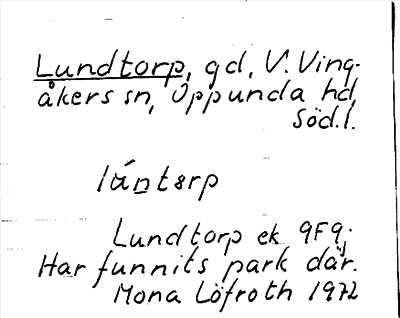 Lundtorp, gd, V. Ving-
åkers sn, Oppunda hd,
Söd.l.
lúntərp
Lundtorp ek 9F9j.
Har funnits park där.
Mona Löfroth 1972